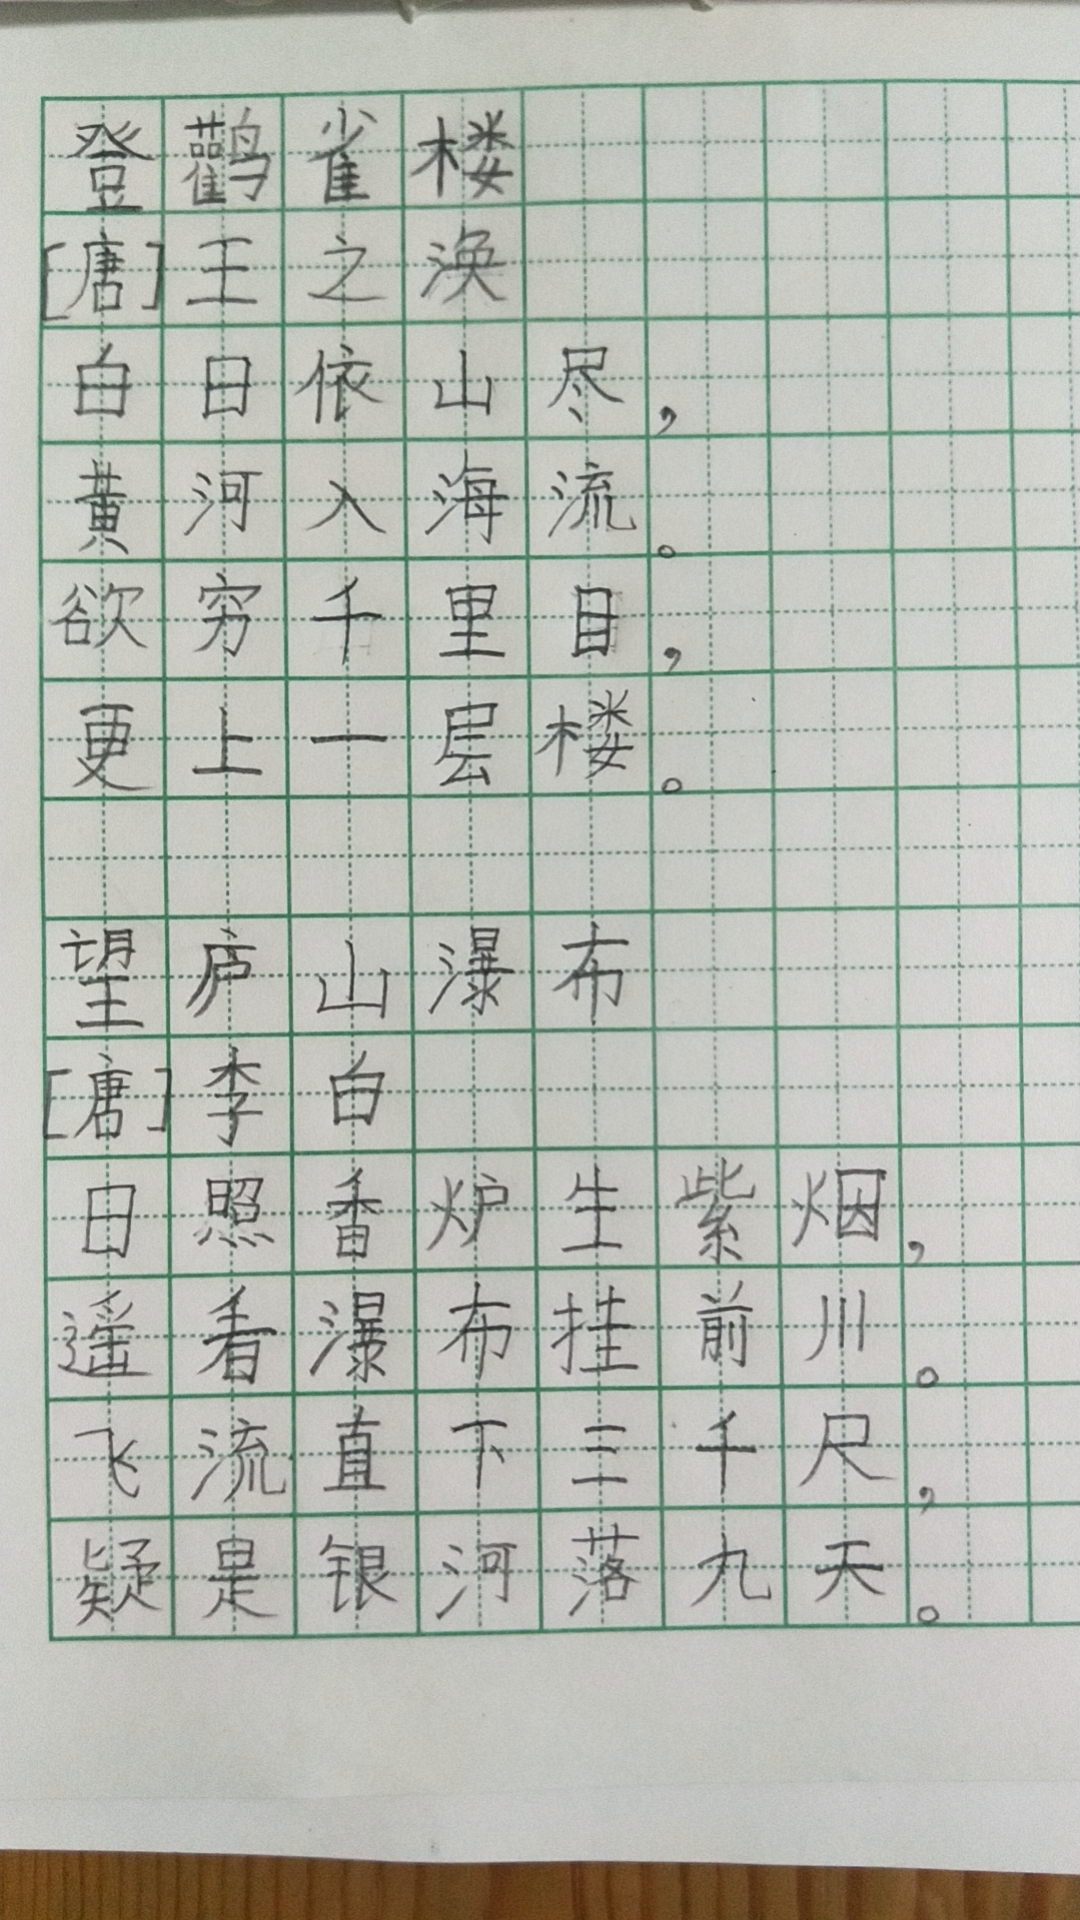 登鹳雀楼
[唐]王之涣
白日依山尽，
黄河入海流。
欲穷千里目，
更上一层楼。
望庐山瀑布
[唐]李白
日照香炉生紫烟，
遥看瀑布挂前川。
飞流直下三千尺，
疑是银河落九天。